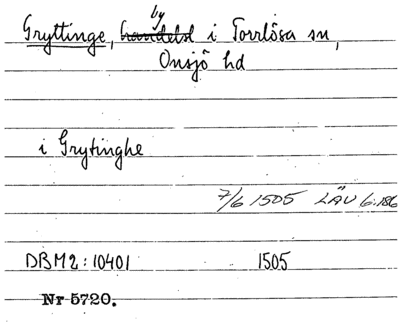 by
Gryttinge, handelsl i Torrlösa sn,
Onsjö hd
i Grytinghe
7/6 1505 LÄU 6:186
DBM2:10401 1505
Nr 5720.